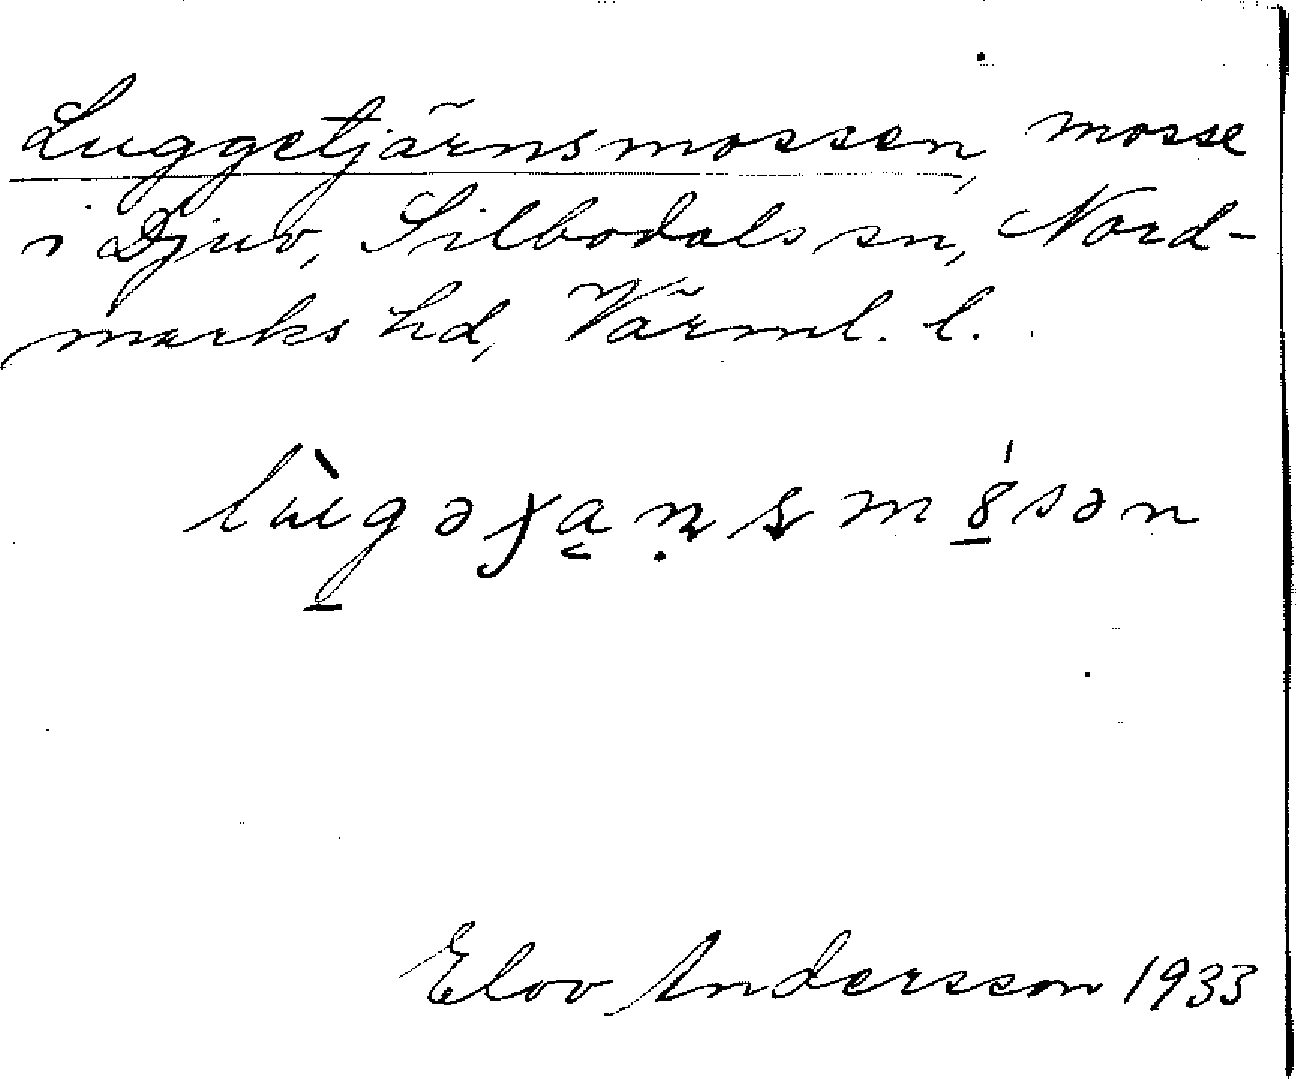 Luggetjärnsmossen, mosse
i Djuv, Silbodals sn, Nord-
marks hd, Värml. l.
Elov Andersson 1933